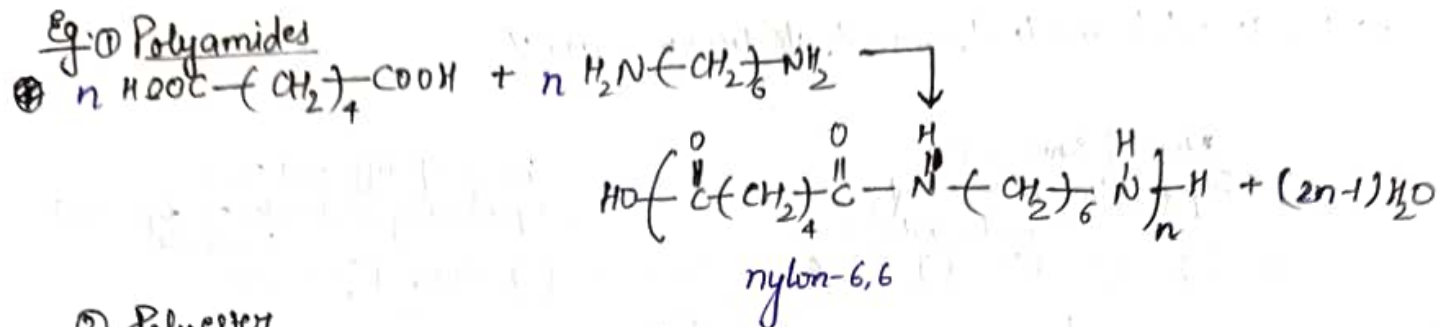 Eg:① Polyamides
n HOOC-(CH₂)₄-COOH + n H₂N-(CH₂)₆-NH₂ ⟶
O O H H
HO-[C-(CH₂)₄-C-N-(CH₂)₆-N]ₙ-H + (2n-1)H₂O
nylon-6,6
② Polyester